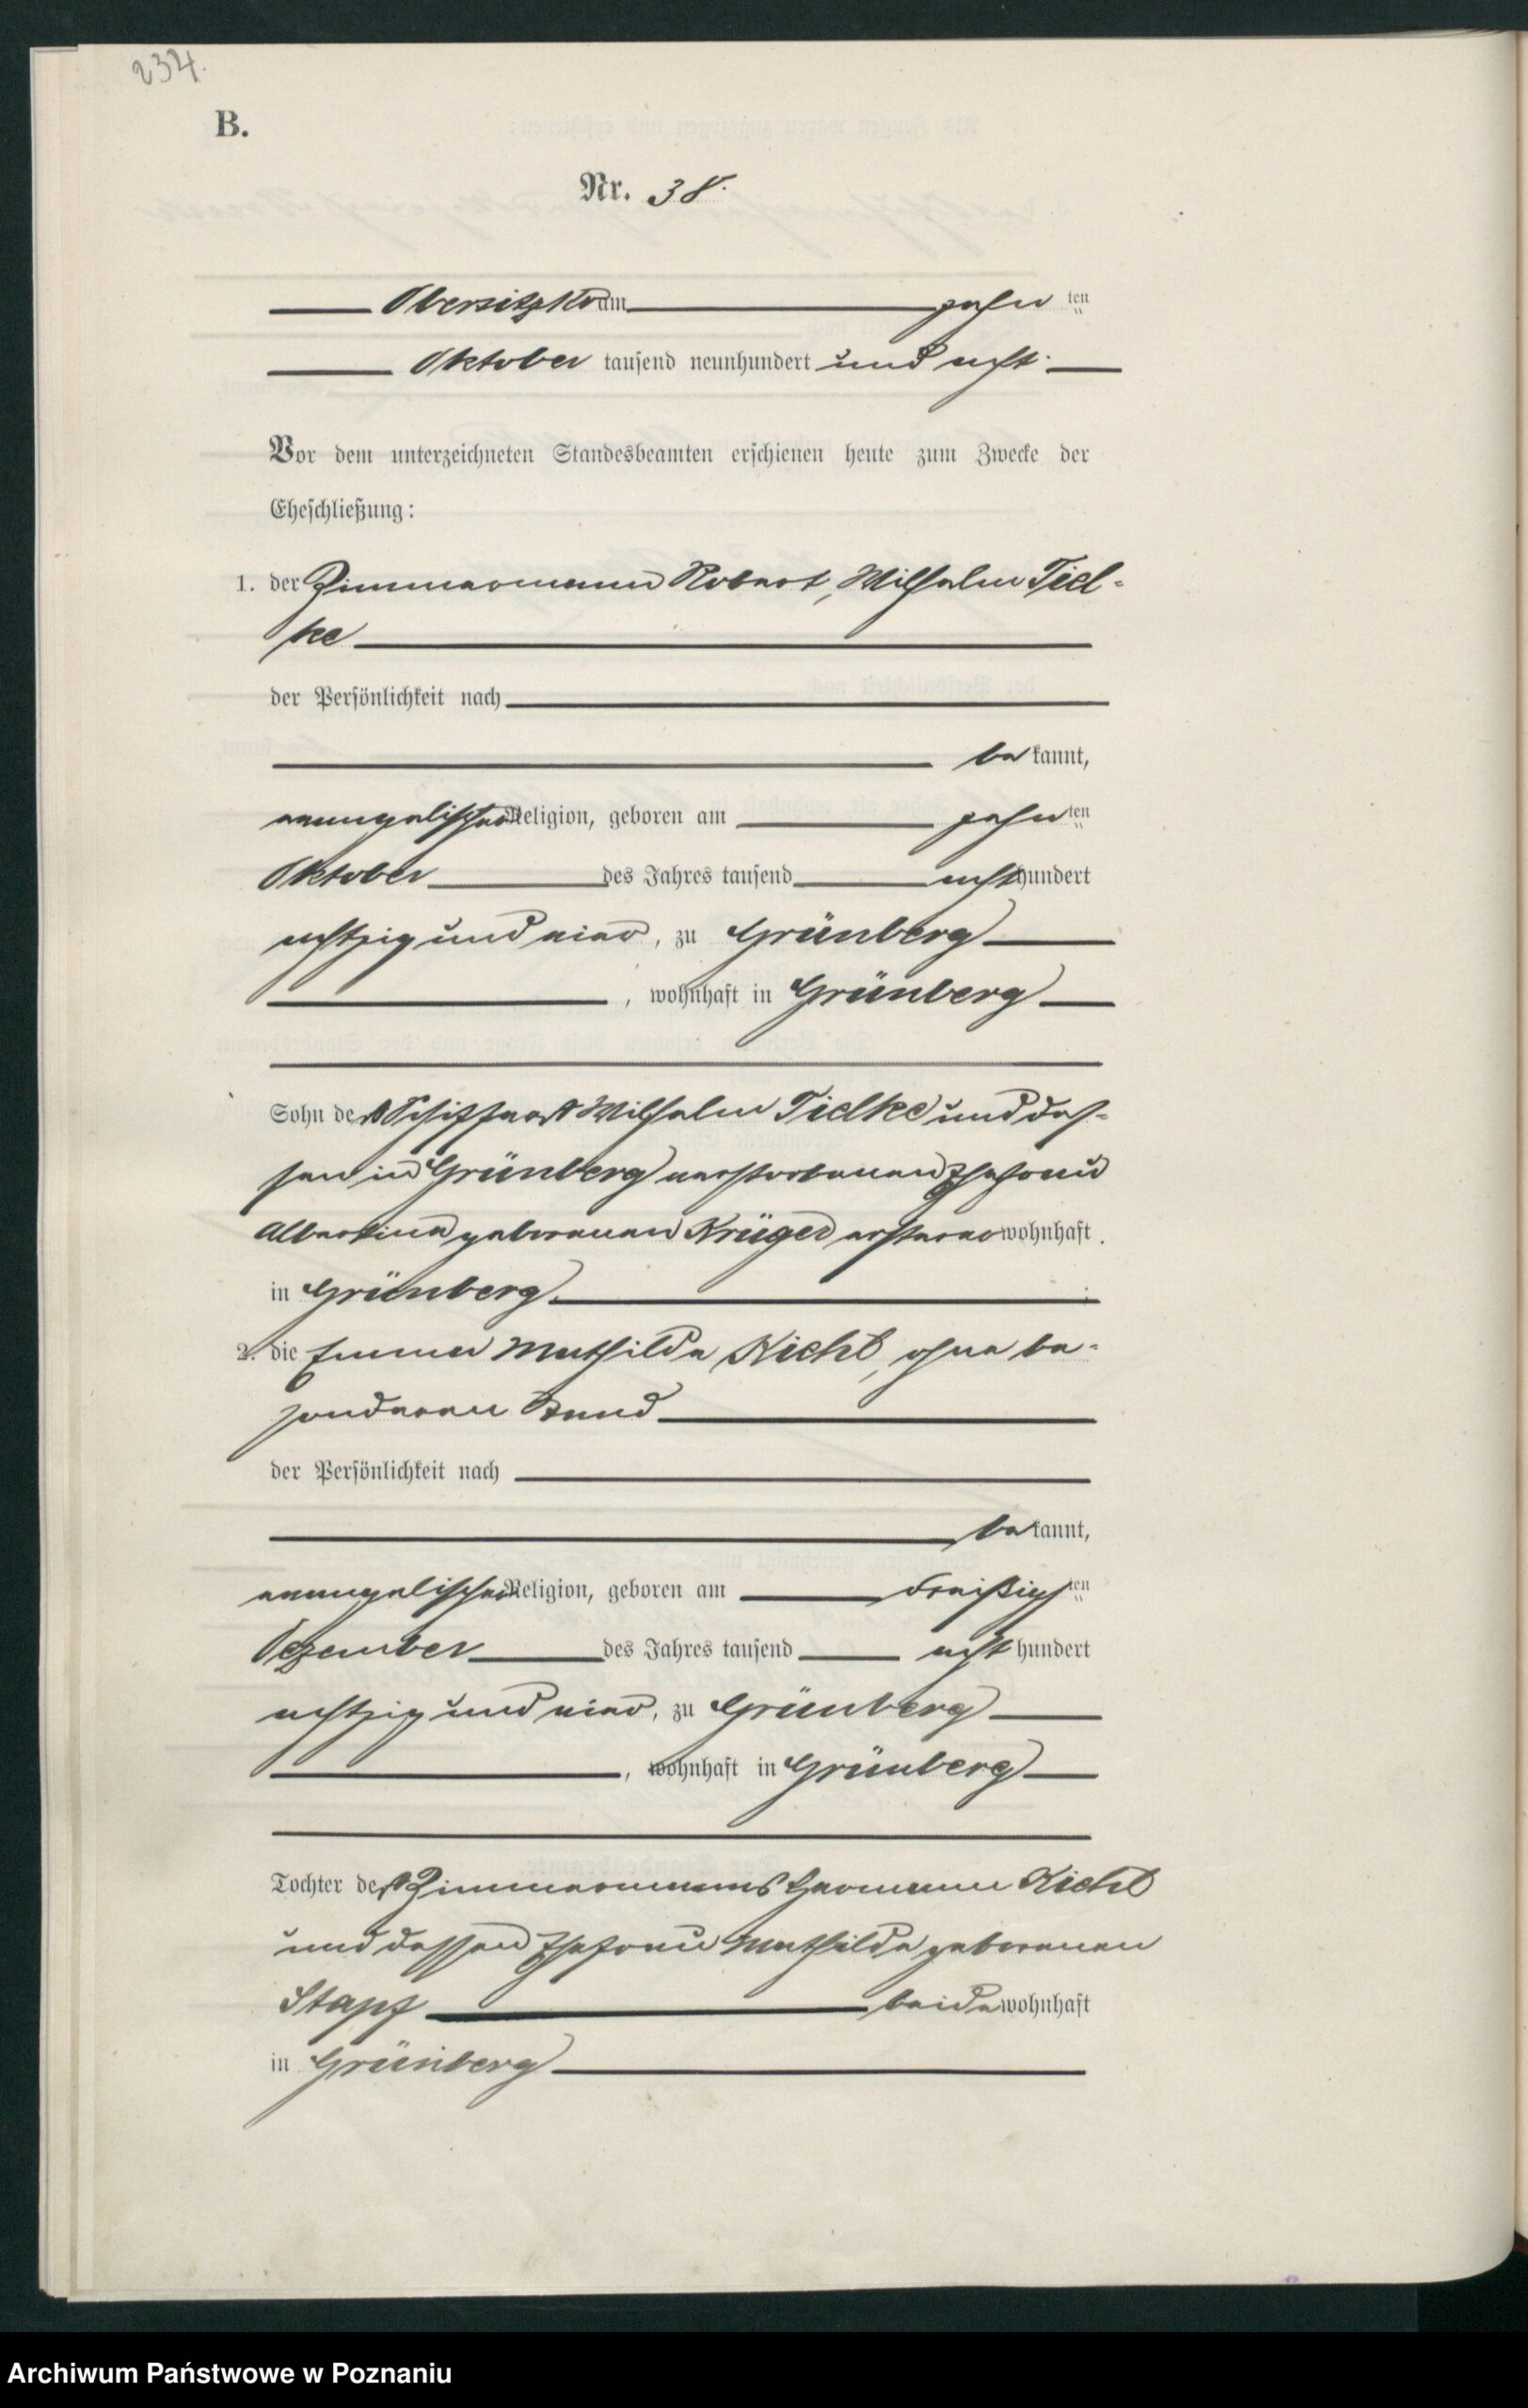 234.
B.
Nr. 38.
Obersitzko am zehn ten
Oktober tausend neunhundert und acht.
Vor dem unterzeichneten Standesbeamten erschienen heute zum Zwecke der
Eheschließung:
1. der Zimmermann Robert, Wilhelm Tiel-
ke
der Persönlichkeit nach
be kannt,
evangelischer Religion, geboren am zehn ten
Oktober des Jahres tausend acht hundert
achtzig und vier, zu Grünberg
, wohnhaft in Grünberg
Sohn des Schiffers Wilhelm Tielke und des-
sen in Grünberg verstorbenen Ehefrau
Albertine geborenen Krüger ersterer wohnhaft
in Grünberg.
2. die Emma Mathilde Kiehl, ohne be-
sonderen Stand
der Persönlichkeit nach
be kannt,
evangelischer Religion, geboren am dreißigs ten
Dezember des Jahres tausend acht hundert
achtzig und vier, zu Grünberg
, wohnhaft in Grünberg
Tochter des Zimmermanns Hermann Kiehl
und dessen Ehefrau Mathilde geborenen
Stapf beide wohnhaft
in Grünberg
Archiwum Państwowe w Poznaniu